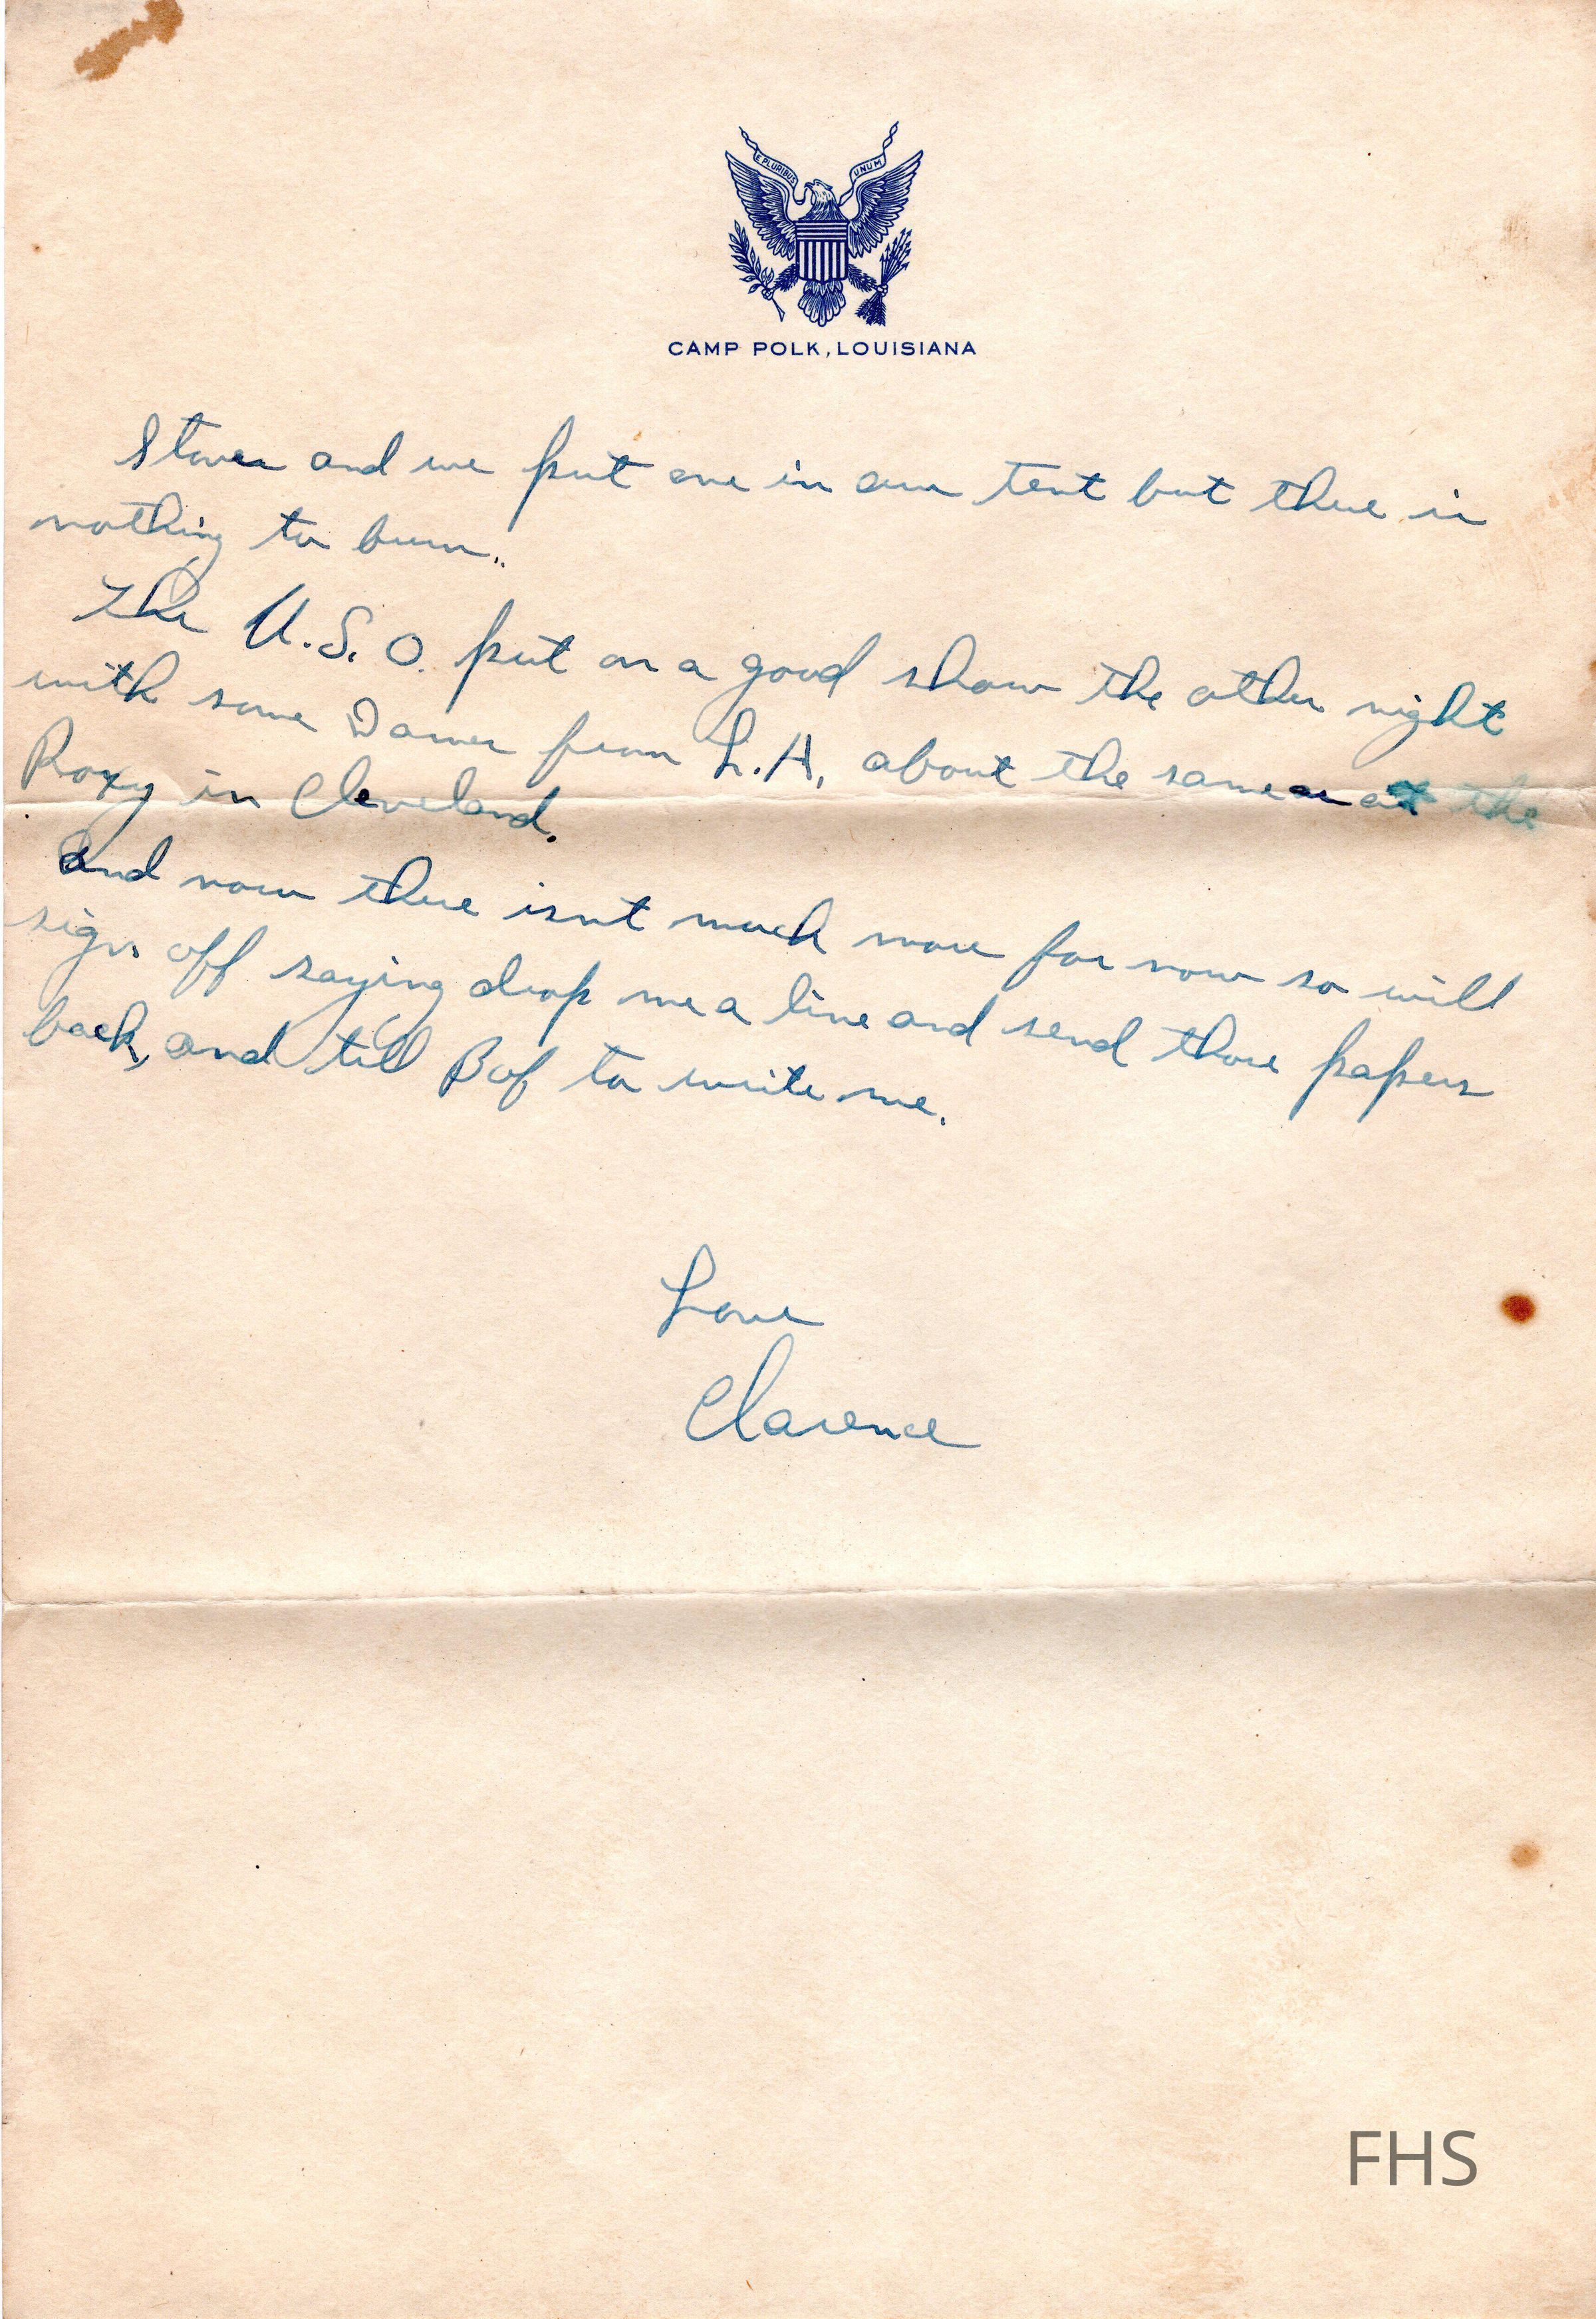 E PLURIBUS UNUM
CAMP POLK, LOUISIANA
Stoves and we put one in our tent but there is
nothing to burn..
The U.S.O. put on a good show the other night
with some Dames from L.A. about the same as at the
Roxy in Cleveland.
And now there isnt much more for now so will
sign off saying drop me a line and send those papers
back, and tell Bof to write me.
Love
Clarence
FHS